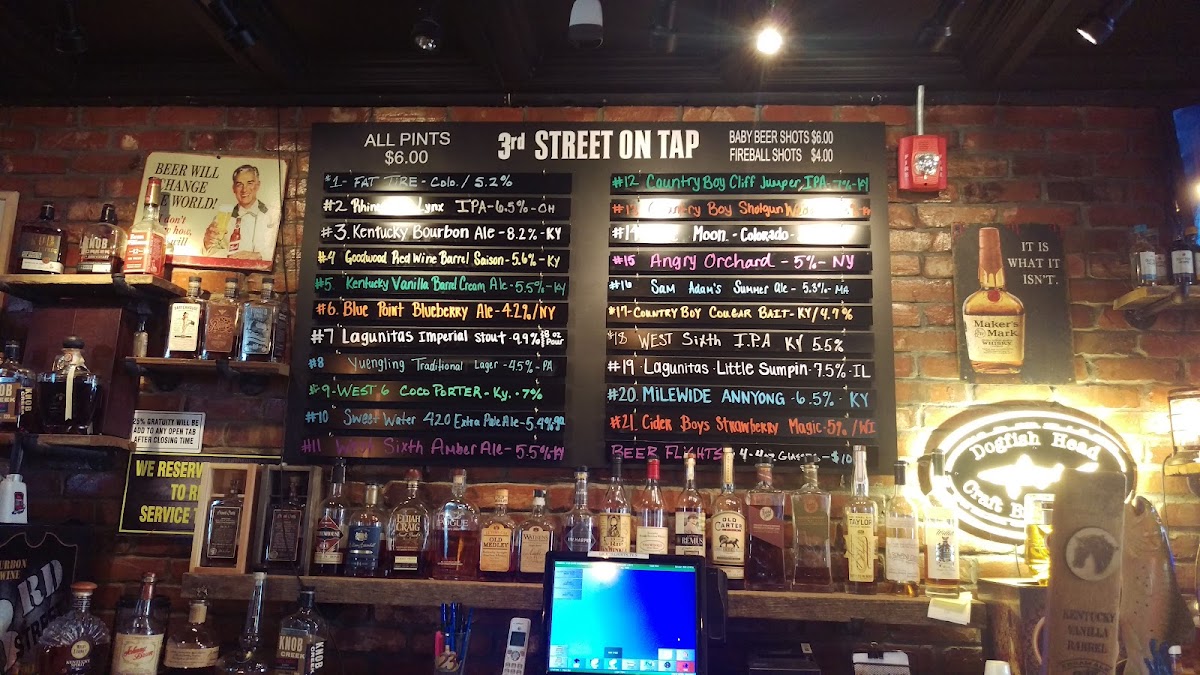 ALL PINTS
$6.00
3rd STREET ON TAP
BABY BEER SHOTS $6.00
FIREBALL SHOTS $4.00
#1- FAT TIRE - Colo. / 5.2%
#2 Lynx IPA-6.5%-OH
#3. Kentucky Bourbon Ale-8.2%-KY
#4 Goodwood Red Wine Barrel Saison-5.6%-KY
#5. Kentucky Vanilla Barrel Cream Ale-5.5%-KY
#6. Blue Point Blueberry Ale-4.2%/NY
#7 Lagunitas Imperial Stout-9.9% 8 oz Pour
#8 Yuengling Traditional Lager-4.5%-PA
#9-WEST 6 COCO PORTER-Ky.-7%
#10 Sweet Water 420 Extra Pale Ale-5.4%
#11 West Sixth Amber Ale-5.5%-KY
#12 Country Boy Cliff Jumper IPA-7%-KY
Country Boy Shotgun
#14 Moon-Colorado-
#15 Angry Orchard-5%-NY
#16 Sam Adam's Summer Ale-5.3%-MA
#17-COUNTRY BOY COUGAR BAIT-KY/4.9%
#18 WEST Sixth I.P.A KY 5.5%
#19 Lagunitas Little Sumpin-7.5%-IL
#20 MILEWIDE ANNYONG-6.5%-KY
#21. Cider Boys Strawberry Magic-5%/WI
BEER FLIGHTS 4-4oz Glasses-$10
BEER WILL
CHANGE
THE WORLD!
don't
how,
will
IT IS
WHAT IT
ISN'T.
Maker's
Mark
WHISKY
25% GRATUITY WILL BE
ADD TO ANY OPEN TAB
AFTER CLOSING TIME
WE RESERV
TO RE
SERVICE T
Dogfish Head
Craft B
FIRE
KNOB
ELIJAH
CRAIG
OLD
MEDLEY
REMUS
OLD
CARTER
TAYLOR
KNOB
CREEK
KENTUCKY
VANILLA
BARREL